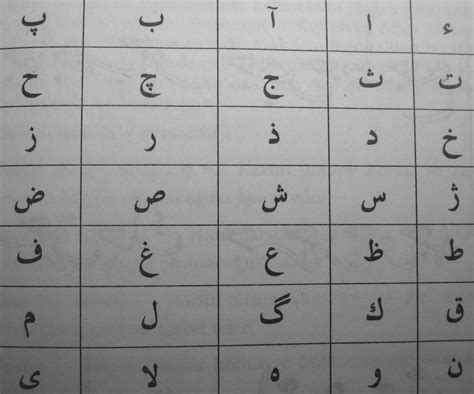 ء ا آ ب پ
ت ث ج چ ح
خ د ذ ر ز
ژ س ش ص ض
ط ظ ع غ ف
ق ك گ ل م
ن و ه لا ى